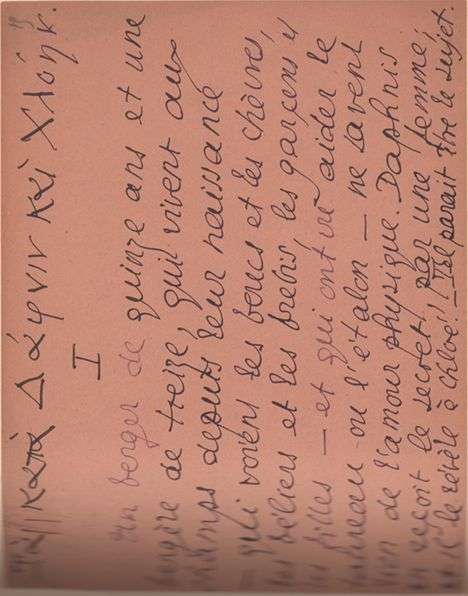 κατὰ Δάφνιν καὶ Χλόην.
I
Un berger de quinze ans et une
bergère de treize, qui vivent aux
champs depuis leur naissance
— qui voient les boucs et les chèvres,
les béliers et les brebis, les garçons
les filles — et qui ont vu aider le
taureau ou l'étalon — ne savent
rien de l'amour physique. Daphnis
en reçoit le secret, par une femme,
le révèle à Chloé! Tel parait être le sujet.